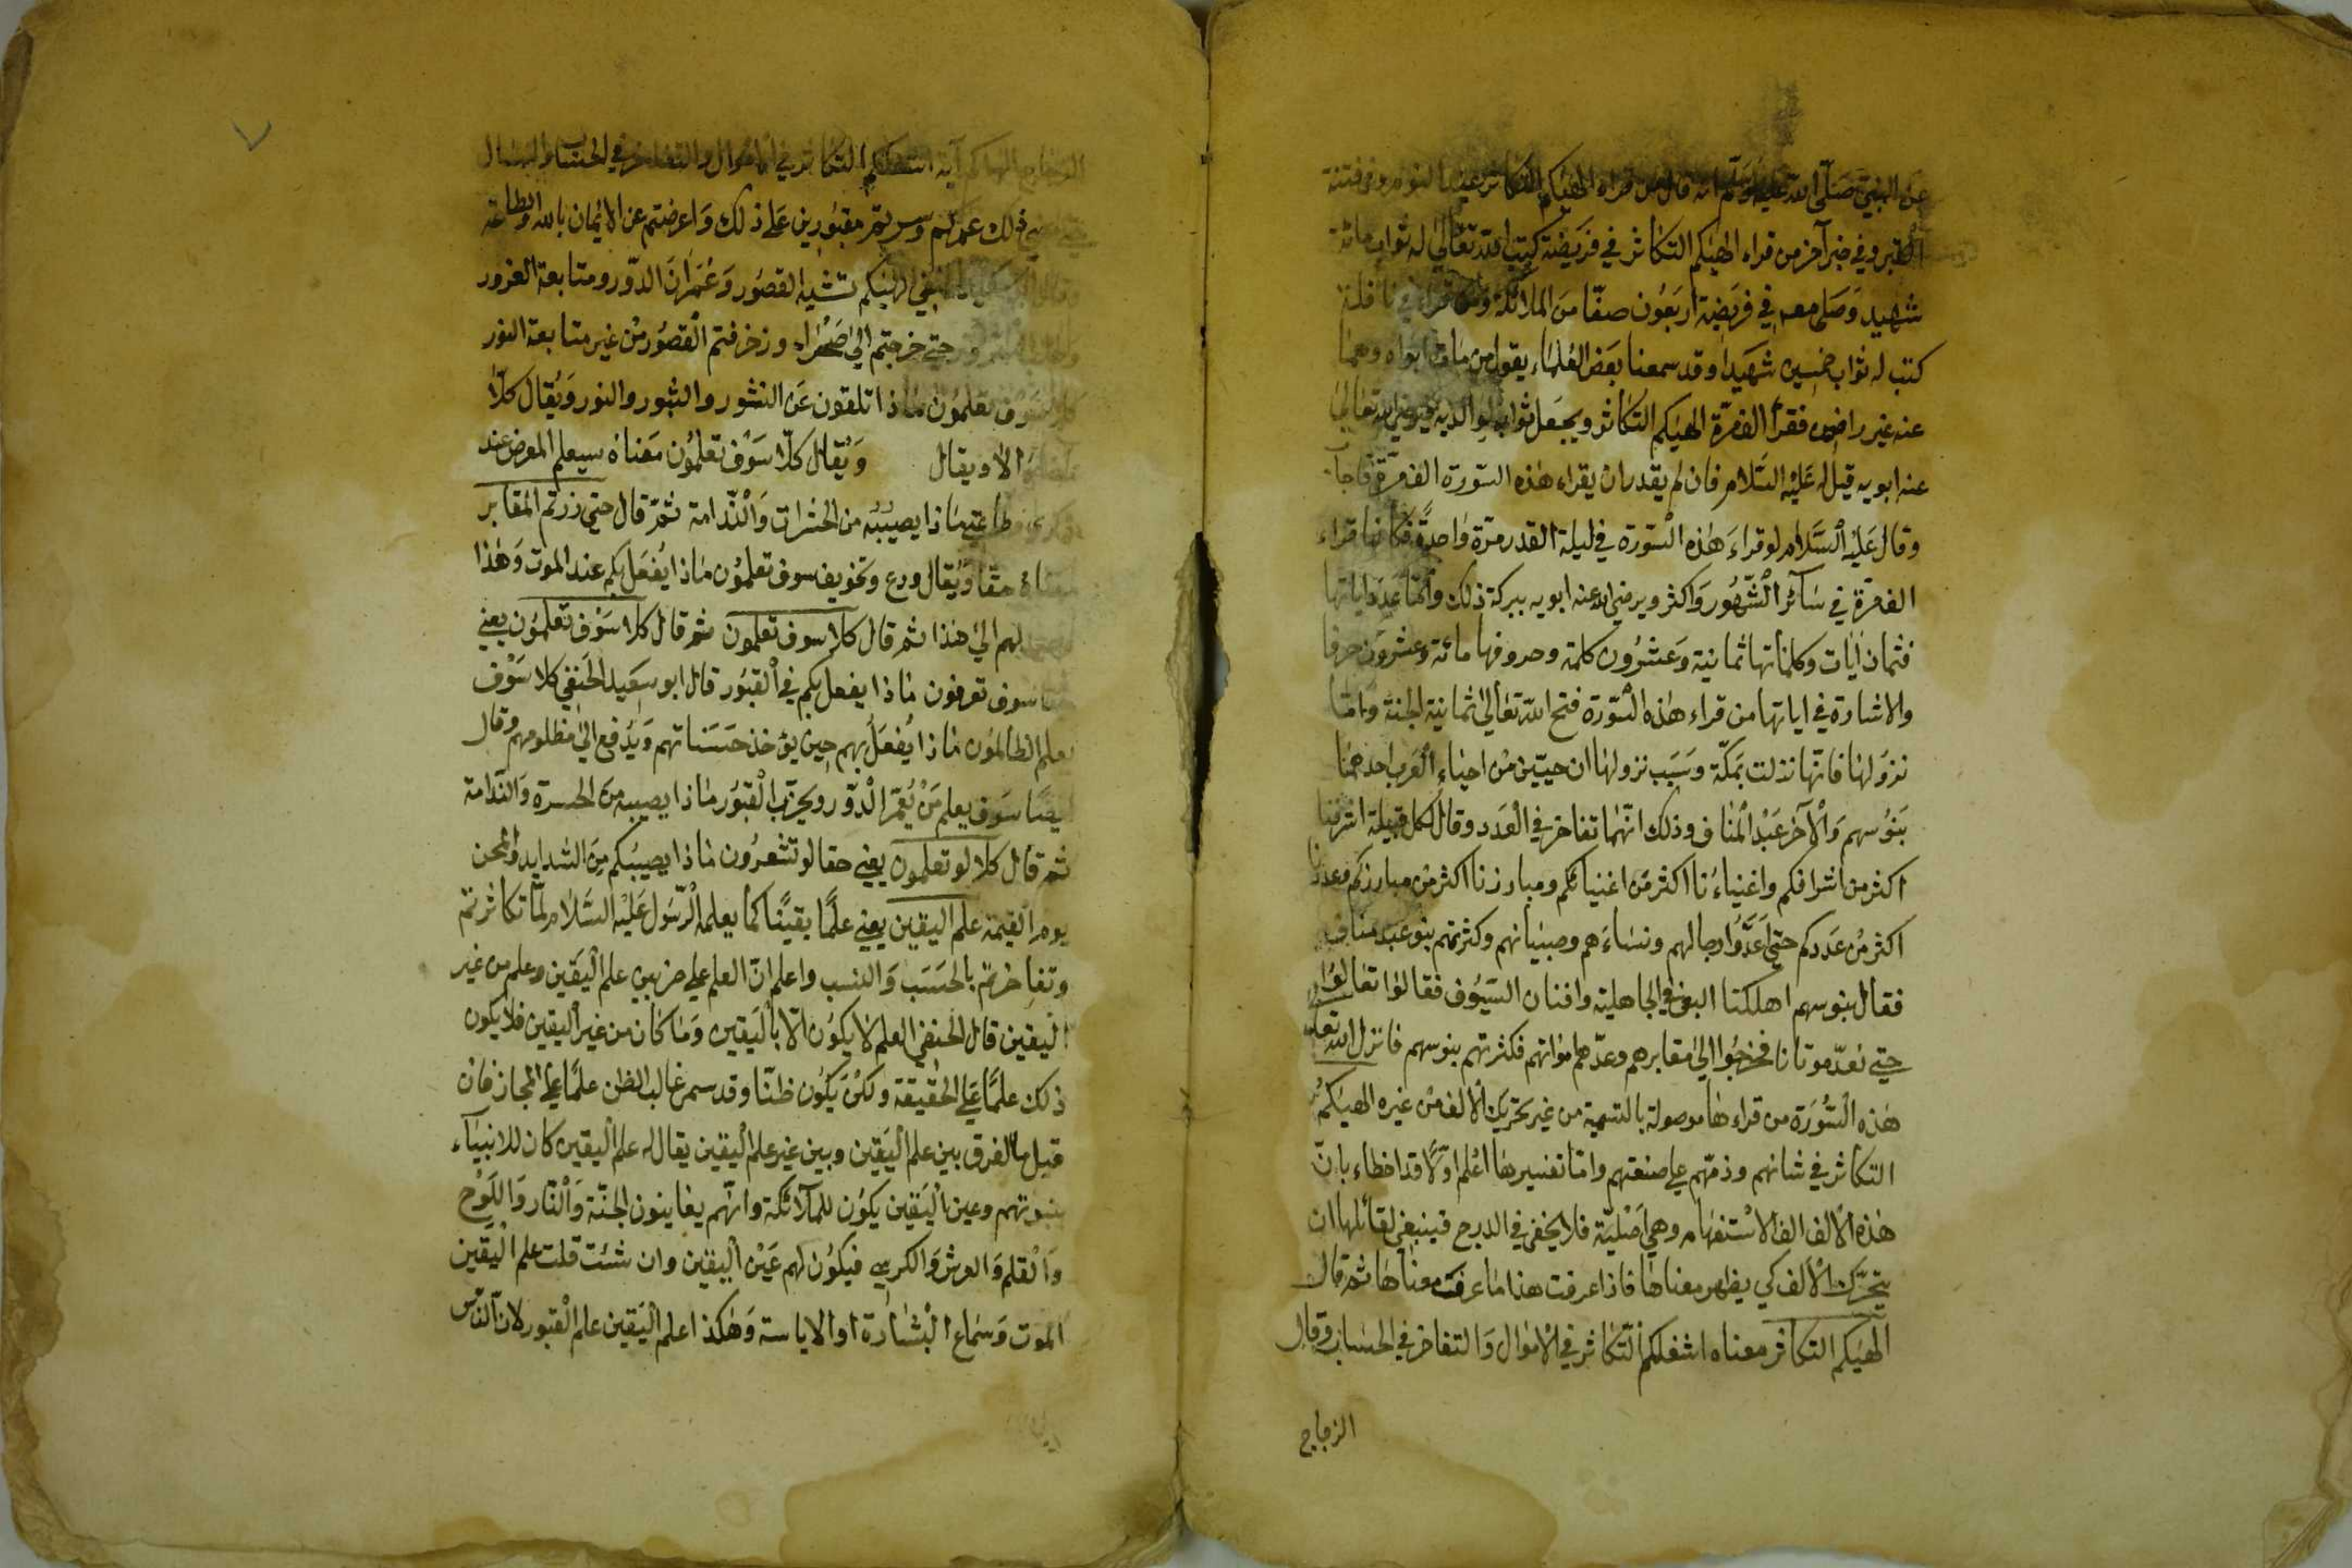 عن النبي صلى الله عليه وسلم انه قال من قراء الهيكم التكاثر عند النوم وقي فتنة
القبر وفي خبر آخر من قراء الهيكم التكاثر في فريضة كتب الله تعالى له ثواب مائة
شهيد وصلى معه في فريضة اربعون صفّا من الملائكة ومن قراء في نافلة
كتب له ثواب خمسين شهيدا وقد سمعنا بعض العلماء يقول من مات ابواه وهما
عنه غير راضون فقرأ الف مرّة الهيكم التكاثر ويجعل ثوابه لوالديه فيرضى الله تعالى
عنه ابويه قيل له عليه السّلام فان لم يقدر ان يقراء هذه السّورة الف مرّة فاجاب
وقال عليه السّلام لو قراء هذه السّورة في ليلة القدر مرّة واحدةً فكأنها قراء
الف مرّة في سائر الشّهور واكثر ويرضى الله عنه ابويه ببركة ذلك وامّا عدد اياتها
فثمان ايات وكلماتها ثمانية وعشرون كلمة وحروفها مائة وعشرون حرفا
والاشارة في اياتها من قراء هذه السّورة فتح الله تعالى ثمانية الجنة وامّا
نزولها فانّها نزلت بمكّة وسبب نزولها ان حيّين من احياء العرب احدهما
بنو سهم والآخر عبد المناف وذلك انّهما تفاخر في العدد وقال لكل قبيلة اشرفنا
اكثر من اشرافكم واغنياءُنا اكثر من اغنيائكم ومبارزنا اكثر من مبارزكم وعددنا
اكثر من عددكم حتى عدّوا رجالهم ونساءهم وصبيانهم وكثرتهم بنو عبد مناف
فقال بنو سهم اهلكنا البغي في الجاهلية وافنان السّيوف فقالوا تعالوا
حتى نعدّ موتانا فخرجوا الى مقابرهم وعدّهم امواتهم فكثرتهم بنو سهم فانزل الله تعالى
هذه السّورة من قراءها موصولة بالتسمية من غير تحريك الالف من غيره الهيكم
التكاثر في شانهم وذمّهم على صنعتهم وامّا تفسيرها اعلم اوّلًا قد اخطاء بانّ
هذه الالف الف الاستفهام وهي اصليّة فلا يخفى في الدرج فينبغى لقائلها ان
يتحرّك الالف كي يظهر معناها فاذا عرفت هذا ما عرفت معناها ثم قال
الهيكم التكاثر معناه اشغلكم التّكاثر في الاموال والتفاخر في الحساب وقال
الزجاج
الزجاج الهاكم آية اشغلكم التكاثر في الاموال والتفاخر في الحساب
ذلك عمركم وسريتم مقبورين على ذلك واعرضتم عن الايمان بالله والطاعة
الحنفي الهيكم تشييد القصور وعمران الدّور ومتابعة الغرور
حتى خرجتم الى صحراء وزخرفتم القصور من غير متابعة النور
كلا سوف تعلمون ماذا تلقون عن النشور والثبور والنور ويقال كلّا
الا ويقال ويقال كلّا سوف تعلمون معناه سيعلم المعرض عند
طاعتي ماذا يصيبه من الحشرات والنّدامة ثمّ قال حتى زرتم المقابر
معناه حقا ويقال ردع وتخويف سوف تعلمون ماذا يفعل بكم عند الموت وهذا
لهم الى هذا ثم قال كلا سوف تعلمون ثم قال كلا سوف تعلمون يعني
سوف تعرفون ماذا يفعل بكم في القبور قال ابو سعيد الحنفي كلا سوف
يعلم الظالمون ماذا يُفعل بهم حين يؤخذ حسناتهم ويدفع الى مظلومهم وقال
ايضًا سوف يعلم من يُعمّر الدّور ويخرّب القبور ماذا يصيبه من الحسرة والنّدامة
ثم قال كلا لو تعلمون يعني حقا لو تشعرون ماذا يصيبكم من الشدايد والمحن
يوم القيمة علم اليقين يعني علمًا يقينًا كما يعلمه الرّسول عليه السّلام لمّا تكاثرتم
وتفاخرتم بالحسب والنسب واعلم انّ العلم على ضربين علم اليقين وعلم من غير
اليقين قال الحنفي العلم لا يكون الّا باليقين وما كان من غير اليقين فلا يكون
ذلك علمًا على الحقيقة ولكن يكون ظنّا وقد سمى غالب الظن علمًا على المجاز فان
قيل ما الفرق بين علم اليقين وبين غير علم اليقين يقال له علم اليقين كان للانبيآء
بنبوتهم وعين اليقين يكون للملآئكة وانّهم يعاينون الجنّة والنّار واللّوح
والقلم والعرش والكرسي فيكون لهم عين اليقين وان شئت قلت علم اليقين
الموت وسماع البشارة او الاياسة وهكذا علم اليقين علم القبور لان النّاس